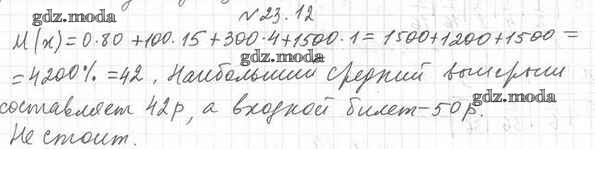 №23.12
gdz.moda
M(x)=0·80+100·15+300·4+1500·1=1500+1200+1500=
gdz.moda
=4200%=42. Наибольший средний выигрыш
gdz.moda
составляет 42р, а входной билет-50р.
gdz.moda
Не стоит.